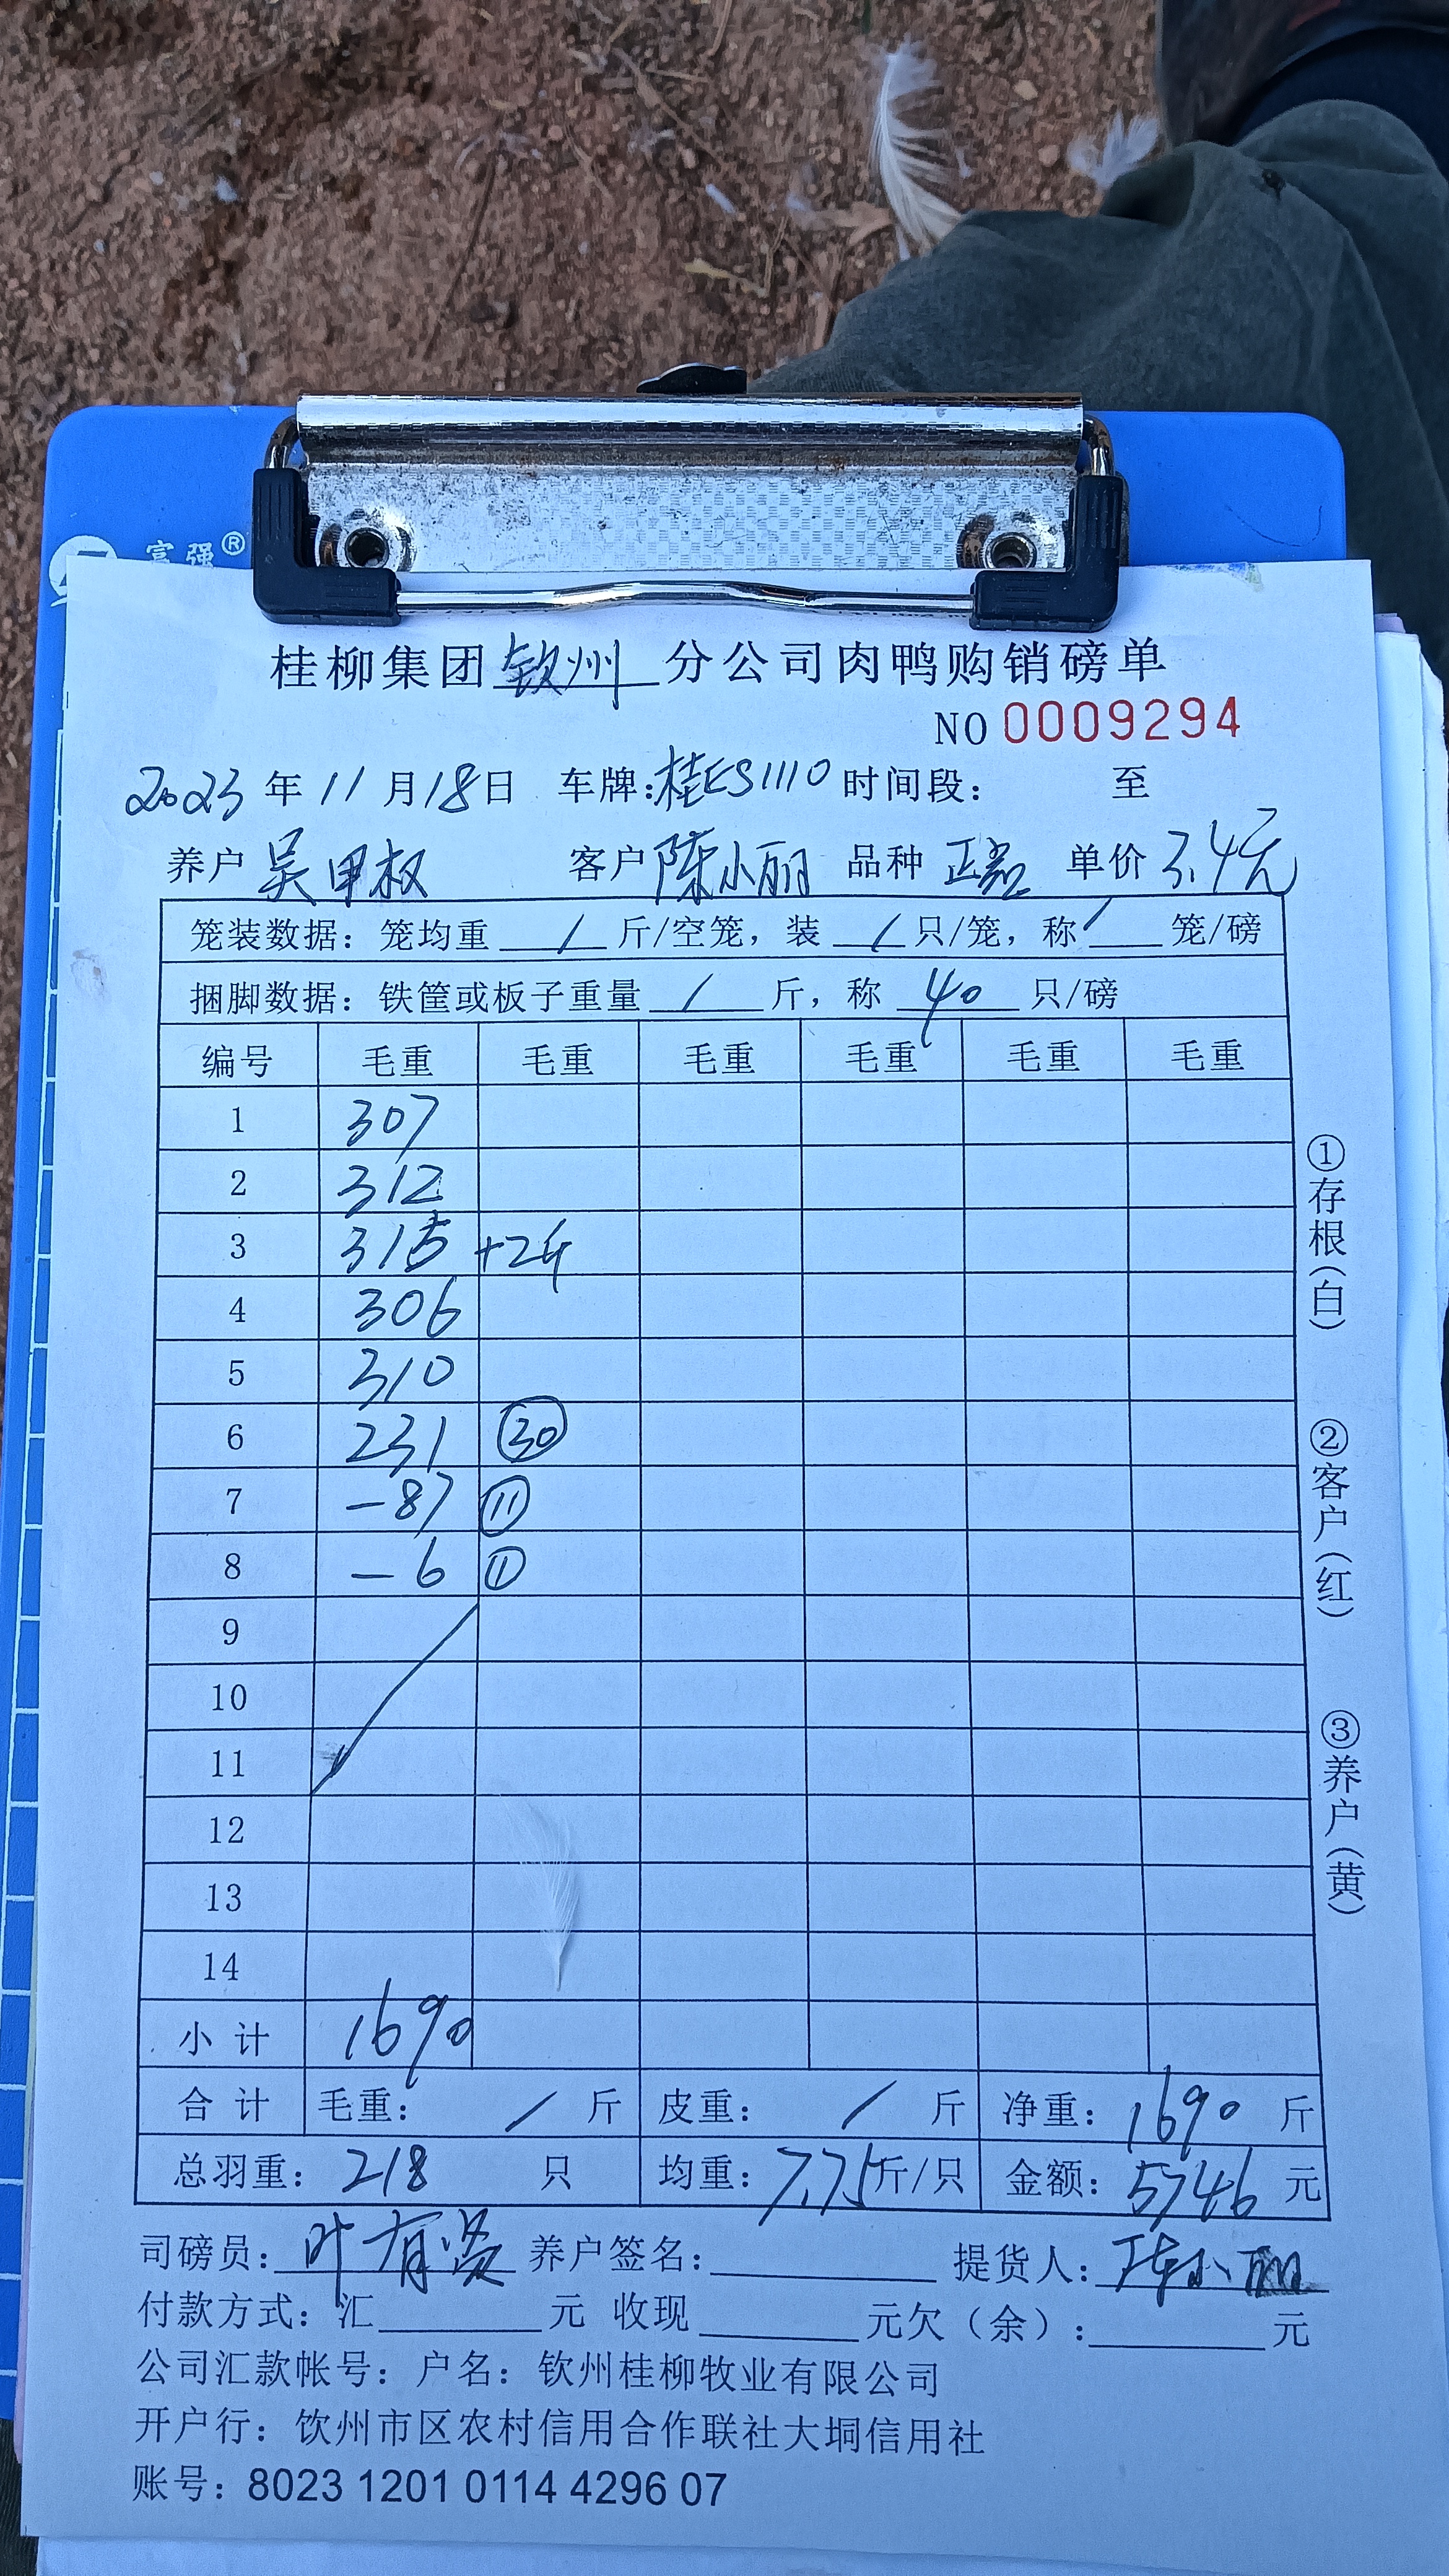 富强®
桂柳集团钦州分公司肉鸭购销磅单
NO 0009294
2023年11月18日 车牌:桂ES1110 时间段: 至
养户 吴甲权 客户 陈小丽 品种 正常 单价 3.4元
笼装数据: 笼均重 / 斤/空笼, 装 / 只/笼, 称 / 笼/磅
捆脚数据: 铁筐或板子重量 / 斤, 称 40 只/磅
编号 毛重 毛重 毛重 毛重 毛重 毛重
1 307
2 312
3 315 +2斤
4 306
5 310
6 231 ㉚
7 -87 ⑪
8 -6 ①
9
10
11
12
13
14
小计 1690
合计 毛重: / 斤 皮重: / 斤 净重: 1690 斤
总羽重: 218 只 均重: 7.75斤/只 金额: 5746 元
司磅员: 叶有贤 养户签名: 提货人: 陈小丽
付款方式: 汇 元 收现 元欠(余): 元
公司汇款帐号: 户名: 钦州桂柳牧业有限公司
开户行: 钦州市区农村信用合作联社大垌信用社
账号: 8023 1201 0114 4296 07
①存根(白)
②客户(红)
③养户(黄)